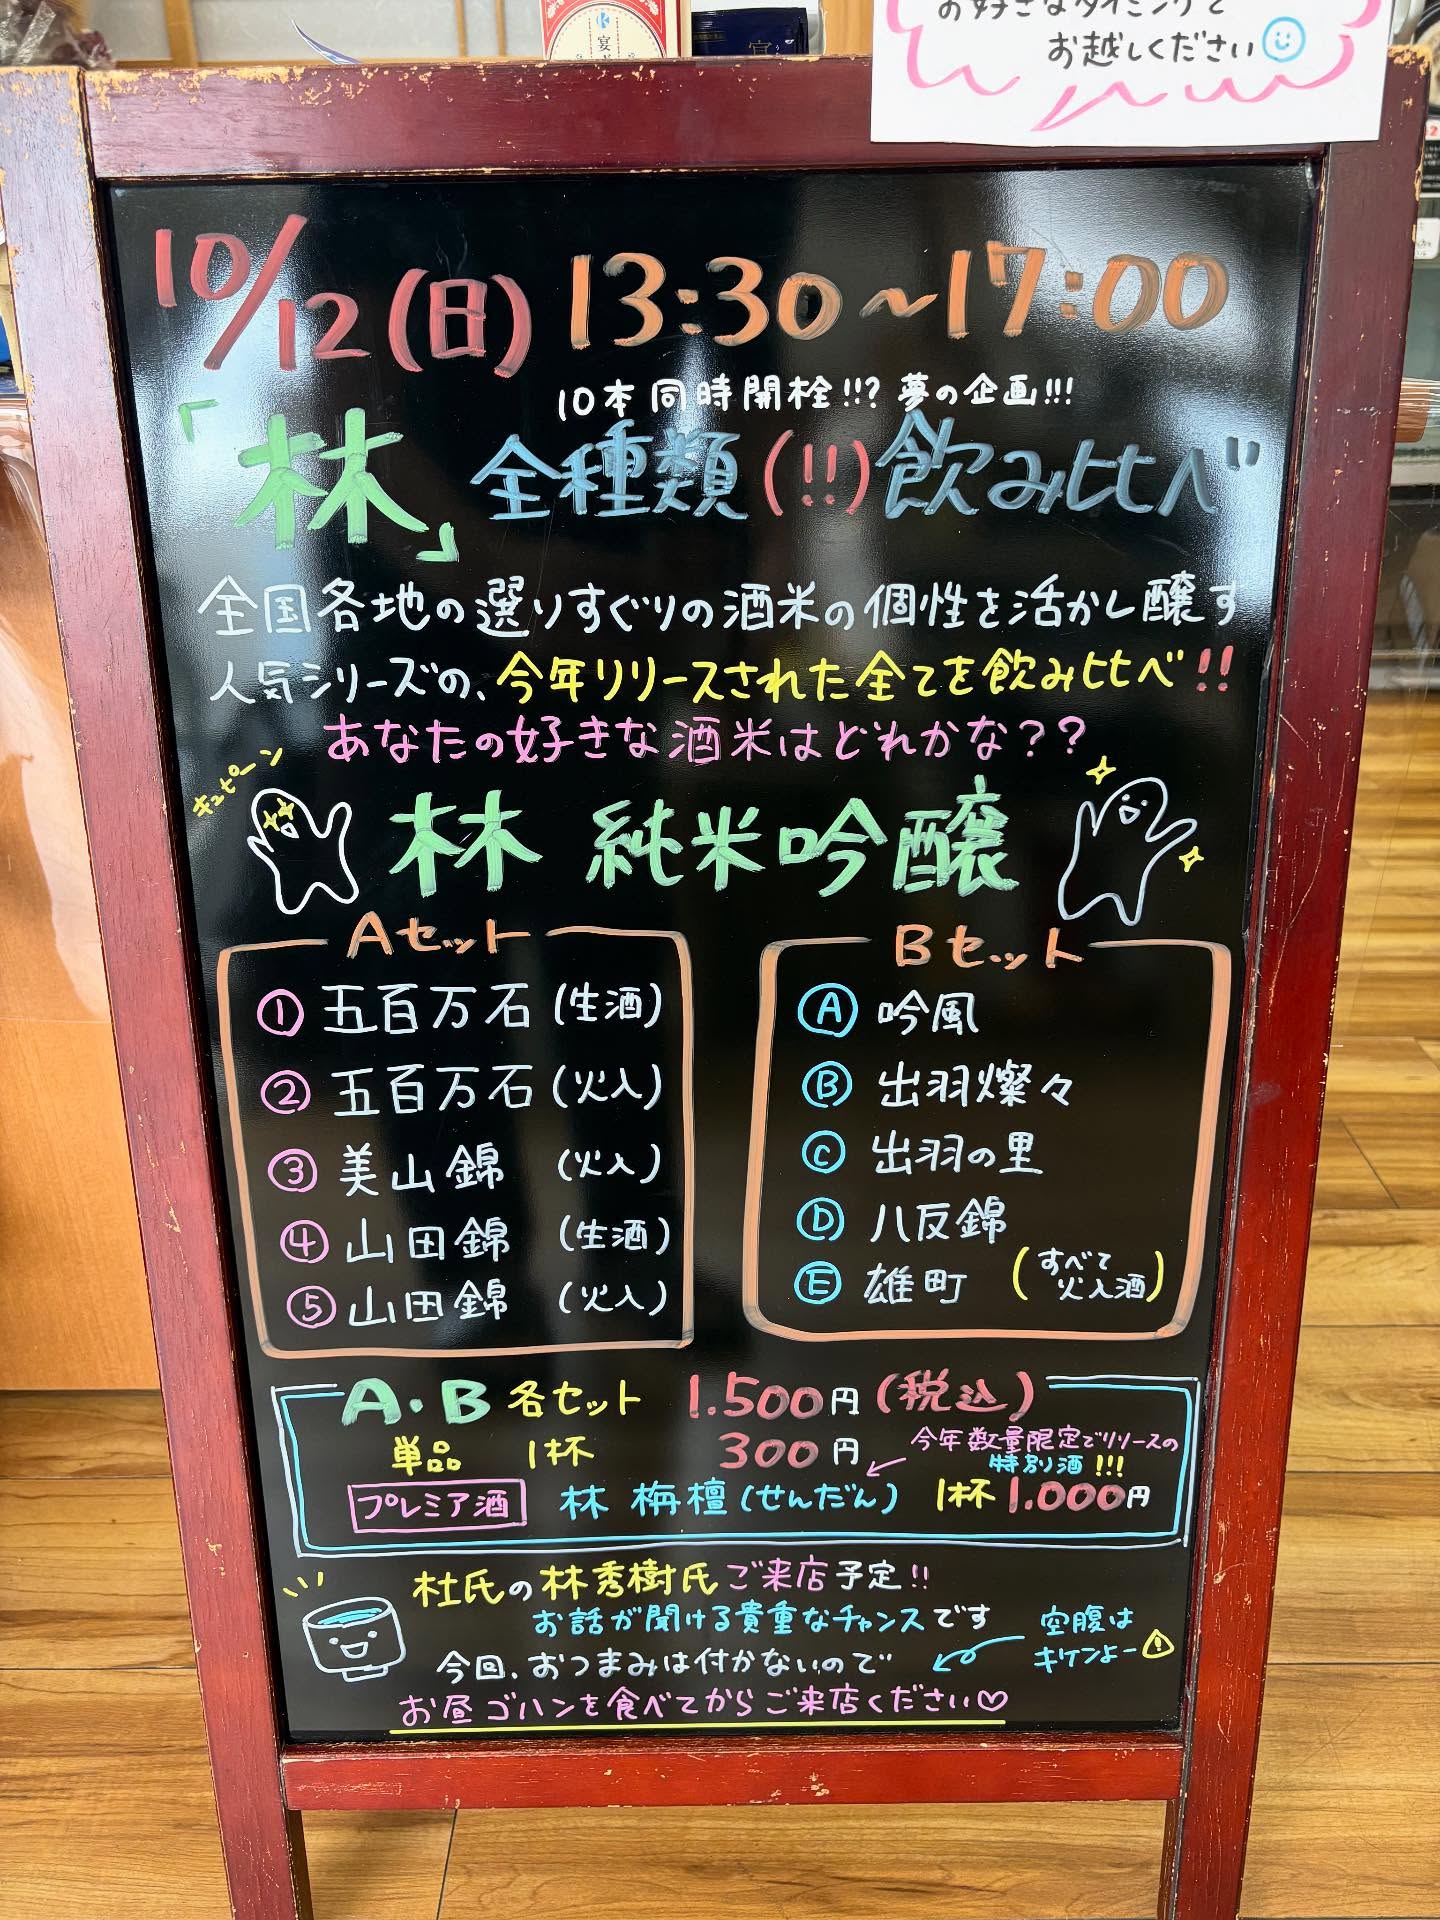 お好きなタイミングで
お越しください
宴
10/12(日) 13:30～17:00
10本同時開栓!!? 夢の企画!!!
「林」全種類(!!)飲み比べ
全国各地の選りすぐりの酒米の個性を活かし醸す
人気シリーズの、今年リリースされた全てを飲み比べ!!
あなたの好きな酒米はどれかな??
キュピーン
林 純米吟醸
Aセット
① 五百万石 (生酒)
② 五百万石 (火入)
③ 美山錦 (火入)
④ 山田錦 (生酒)
⑤ 山田錦 (火入)
Bセット
Ⓐ 吟風
Ⓑ 出羽燦々
Ⓒ 出羽の里
Ⓓ 八反錦
Ⓔ 雄町 (すべて火入酒)
A・B 各セット 1.500円(税込)
単品 1杯 300円
今年数量限定でリリースの
特別酒!!!
プレミア酒 林 栴檀(せんだん) 1杯1.000円
杜氏の林秀樹氏ご来店予定!!
お話が聞ける貴重なチャンスです
空腹は
キケンよー
今回、おつまみは付かないので
お昼ゴハンを食べてからご来店ください♡